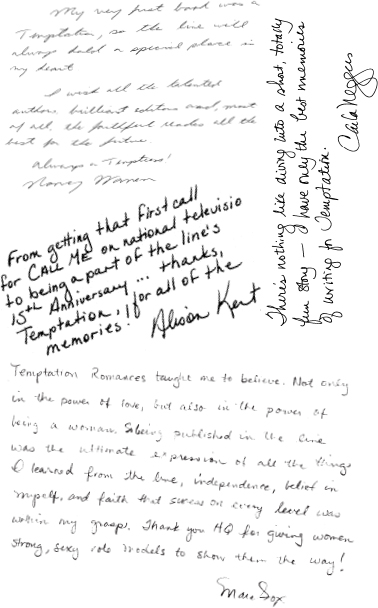 My very first book was a
Temptation, so the line will
always hold a special place in
my heart.
I wish all the talented
authors, brilliant editors and, most
of all, the faithful readers all the
best for the future.
Always a Temptress!
Nancy Warren
There's nothing like diving into a short, totally
fun story — I have only the best memories
of writing for Temptation.
Carla Neggers
From getting that first call
for CALL ME on national televisio
to being a part of the line's
15th Anniversary... thanks,
Temptation, for all of the
memories!
Alison Kent
Temptation Romances taught me to believe. Not only
in the power of love, but also in the power of
being a woman. Being published in the line
was the ultimate expression of all the things
I learned from the line, independence, belief in
myself, and faith that success on every level was
within my grasp. Thank you HQ for giving women
strong, sexy role models to show them the way!